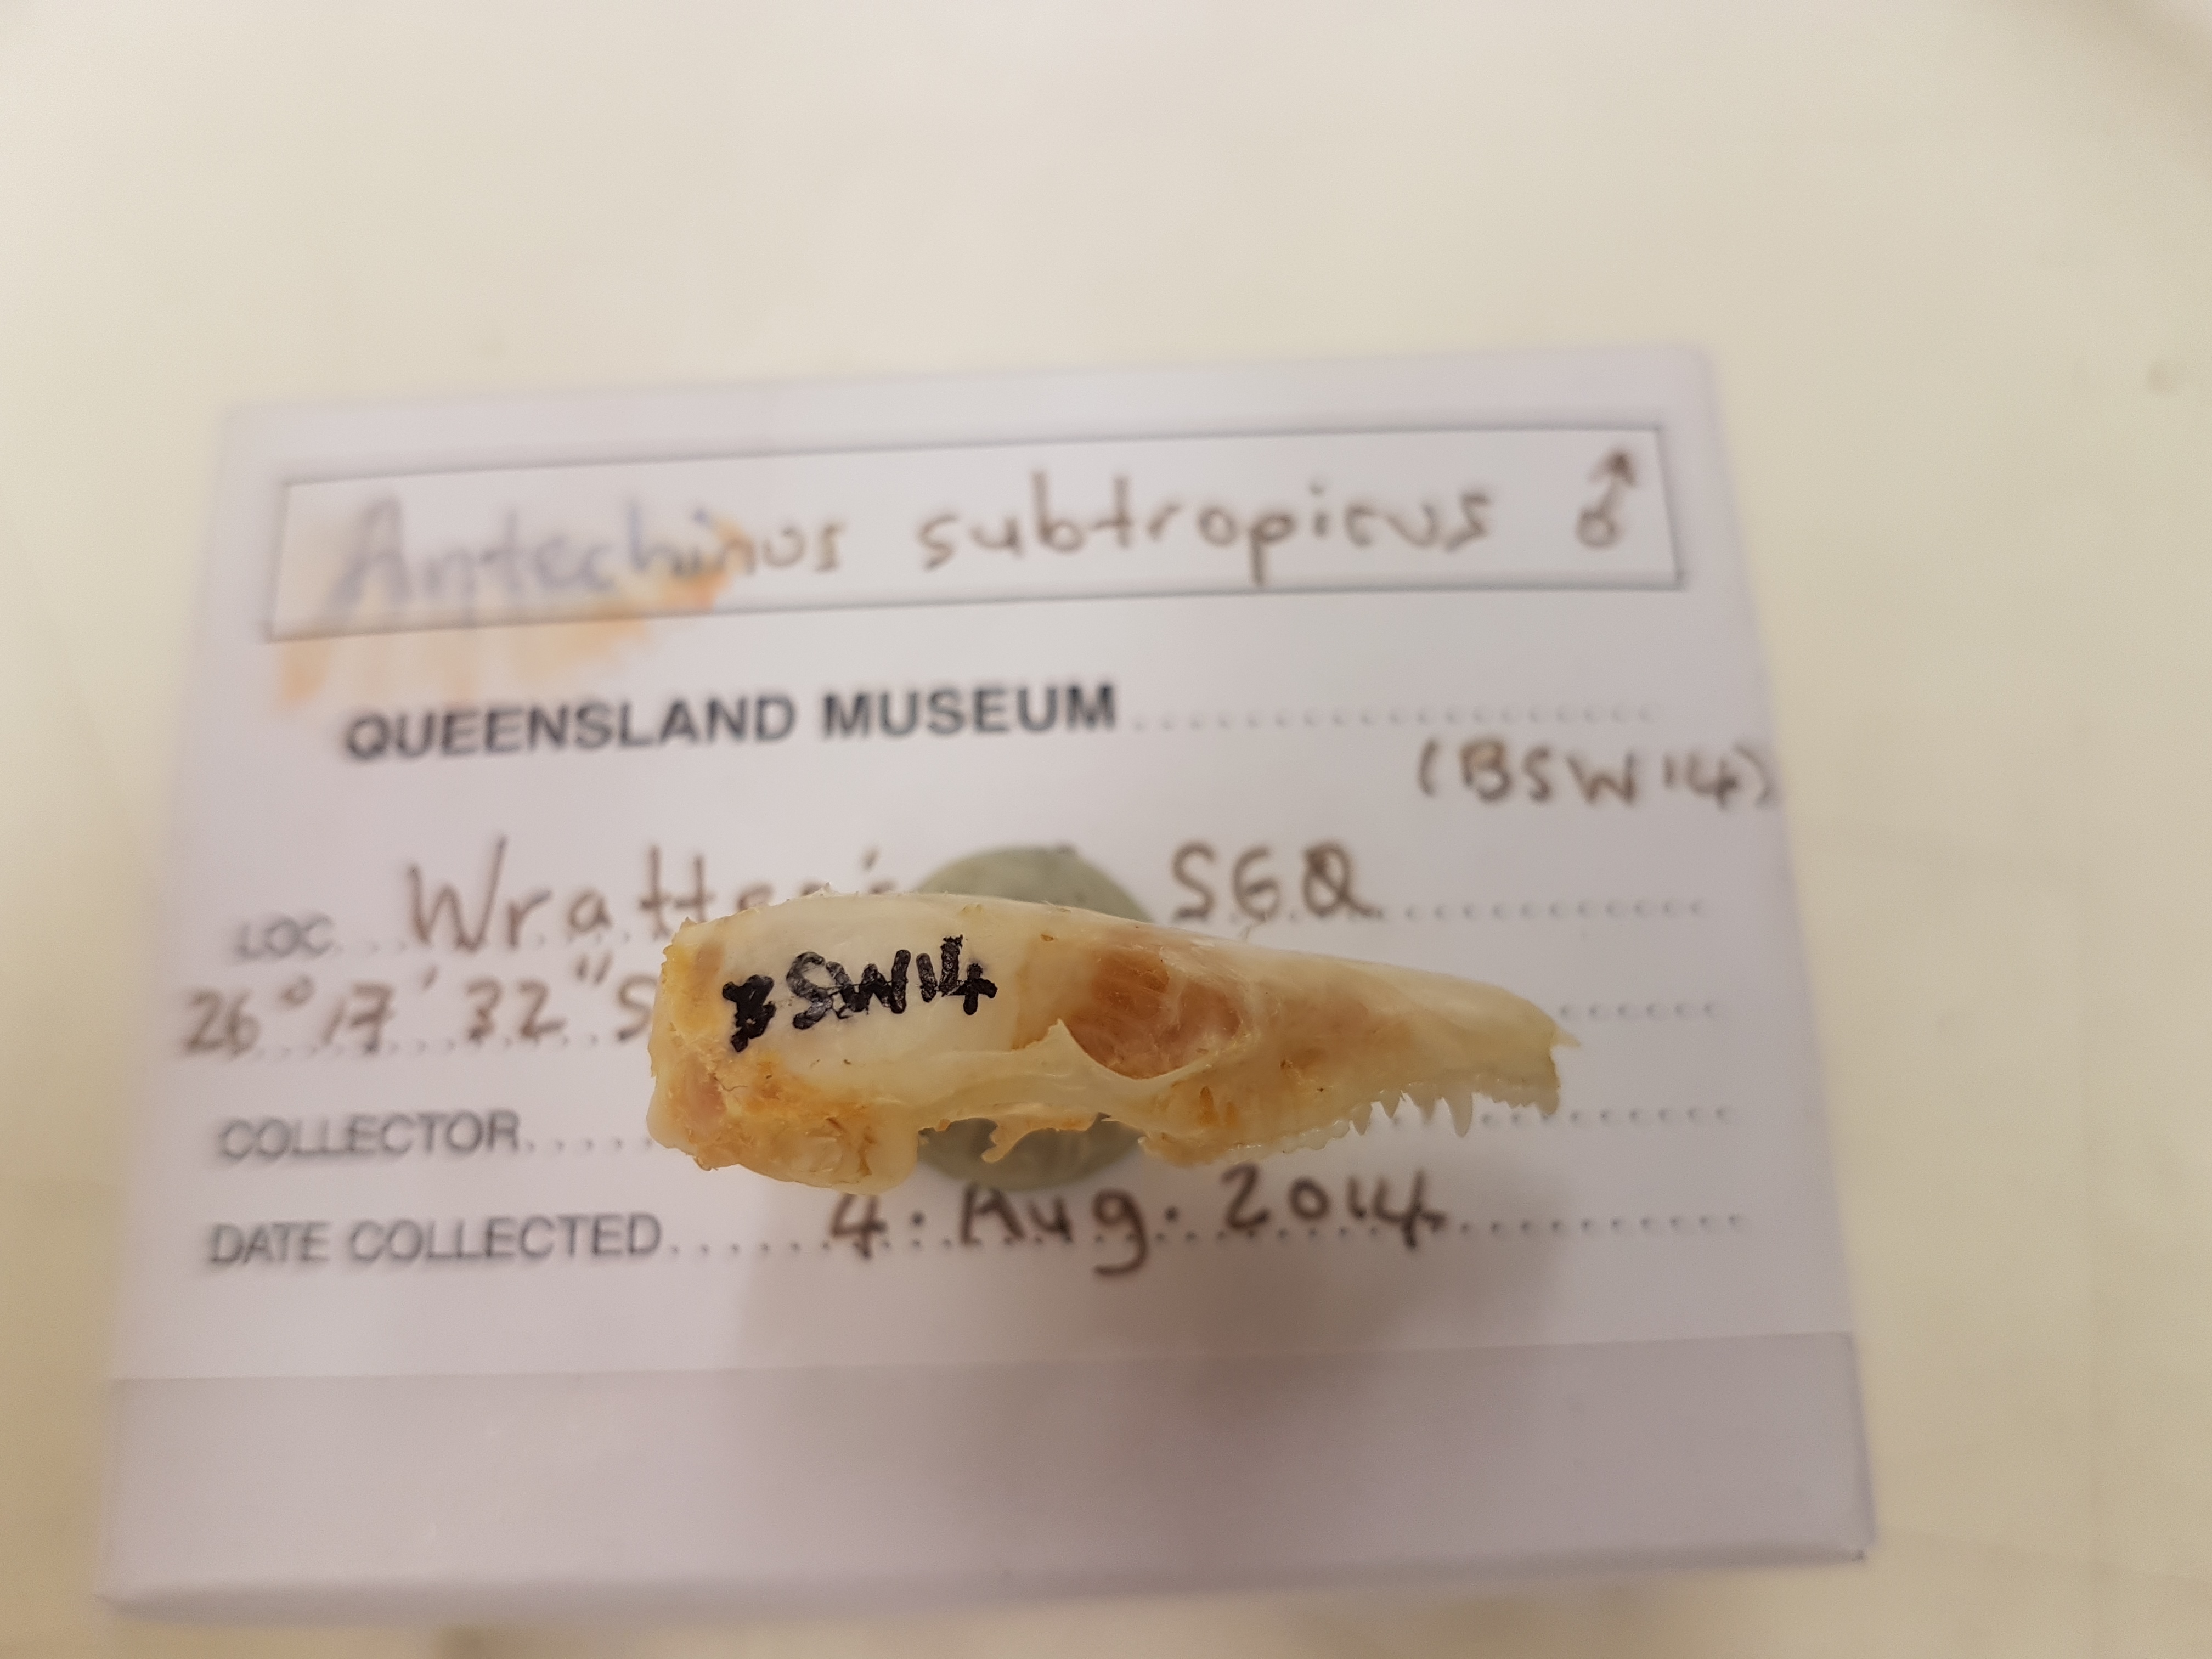 Antechinus subtropicus ♂
QUEENSLAND MUSEUM
(BSW14)
LOC SEQ
26° 17' 32" S
BSW14
COLLECTOR
DATE COLLECTED 4. Aug. 2014